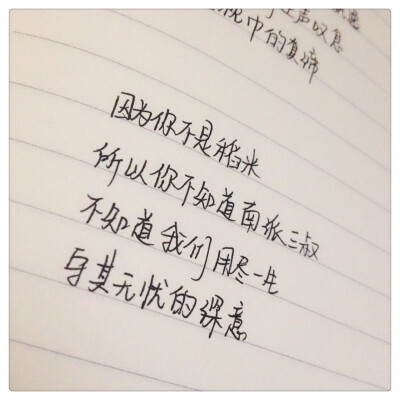 声叹息
中的
因为你不是稻米
所以你不知道南派三叔
不知道我们用尽一生
与其无忧的深意